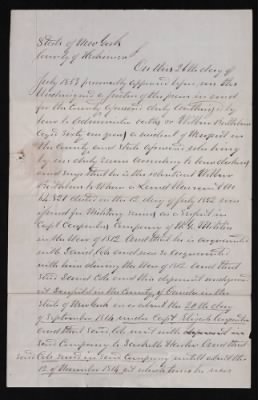 State of New York
County of Herkimer
On this 26th day of
July 1853 personally appeared before me the
undersigned a Justice of the peace in and
for the County aforesaid duly authorized by
law to Administer oaths
Aged sixty six years a resident of Newport in
the County and State aforesaid who being
by me duly sworn according to law declares
and says that he is the identical
to whom a Land Warrant No
dated on the 12 day of July 1852 was
issued for Military services as a
Capt Company of N.Y. Militia
in the War of 1812 And that he is acquainted
with Daniel Cole and was so acquainted
with him during the War of 1812 And that
said Daniel Cole and this deponent
at in the County of in the
State of New York on or about the 20th day
of September 1814 under Capt
and that said Cole went with deponent in
said Company to Sacketts Harbor And that
said Cole served in said Company until about the
12 of November 1814 at which time he was